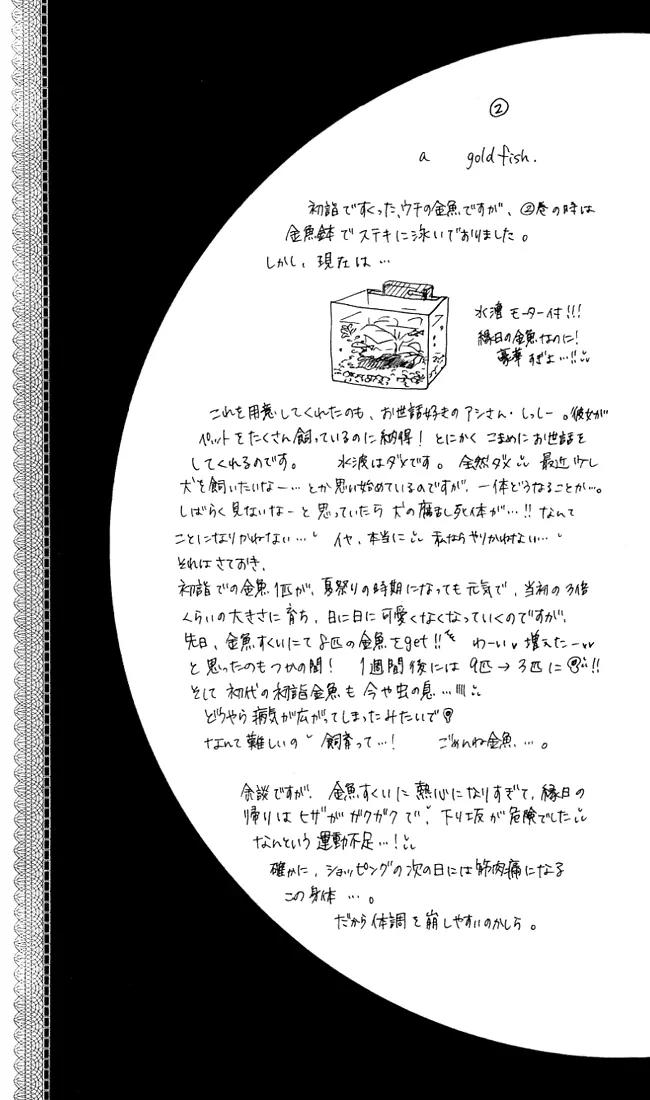 ②
a goldfish.
初詣ですくった、ウチの金魚ですが、②巻の時は
金魚鉢でステキに泳いでおりました。
しかし、現在は…
水濾モーター付!!!
縁日の金魚なのに!
豪華すぎよ…!!
これを用意してくれたのも、お世話好きのアシさん・しっしー。彼女が
ペットをたくさん飼っているのに納得! とにかくこまめにお世話を
してくれるのです。 水波はダメです。全然ダメ 最近少し
犬を飼いたいなー…とか思い始めているのですが、一体どうなることか…。
しばらく見ないなーと思っていたら犬の腐乱死体が…!!なんて
ことになりかねない… イヤ、本当に 私ならやりかねない…
それはさておき、
初詣での金魚1匹が、夏祭りの時期になっても元気で、当初の3倍
くらいの大きさに育ち、日に日に可愛くなくなっていくのですが、
先日、金魚すくいにて8匹の金魚をget!! わーい♥増えたー♥♥
と思ったのもつかの間! 1週間後には9匹→3匹に!!
そして初代の初詣金魚も今や虫の息…
どうやら病気が広がってしまったみたいで
なんて難しいの 飼育って…! ごめんね金魚…。
余談ですが、金魚すくいに熱心になりすぎて、縁日の
帰りはヒザがガクガクで、下り坂が危険でした
なんという運動不足…!
確かに、ショッピングの次の日には筋肉痛になる
この身体…。
だから体調を崩しやすいのかしら。